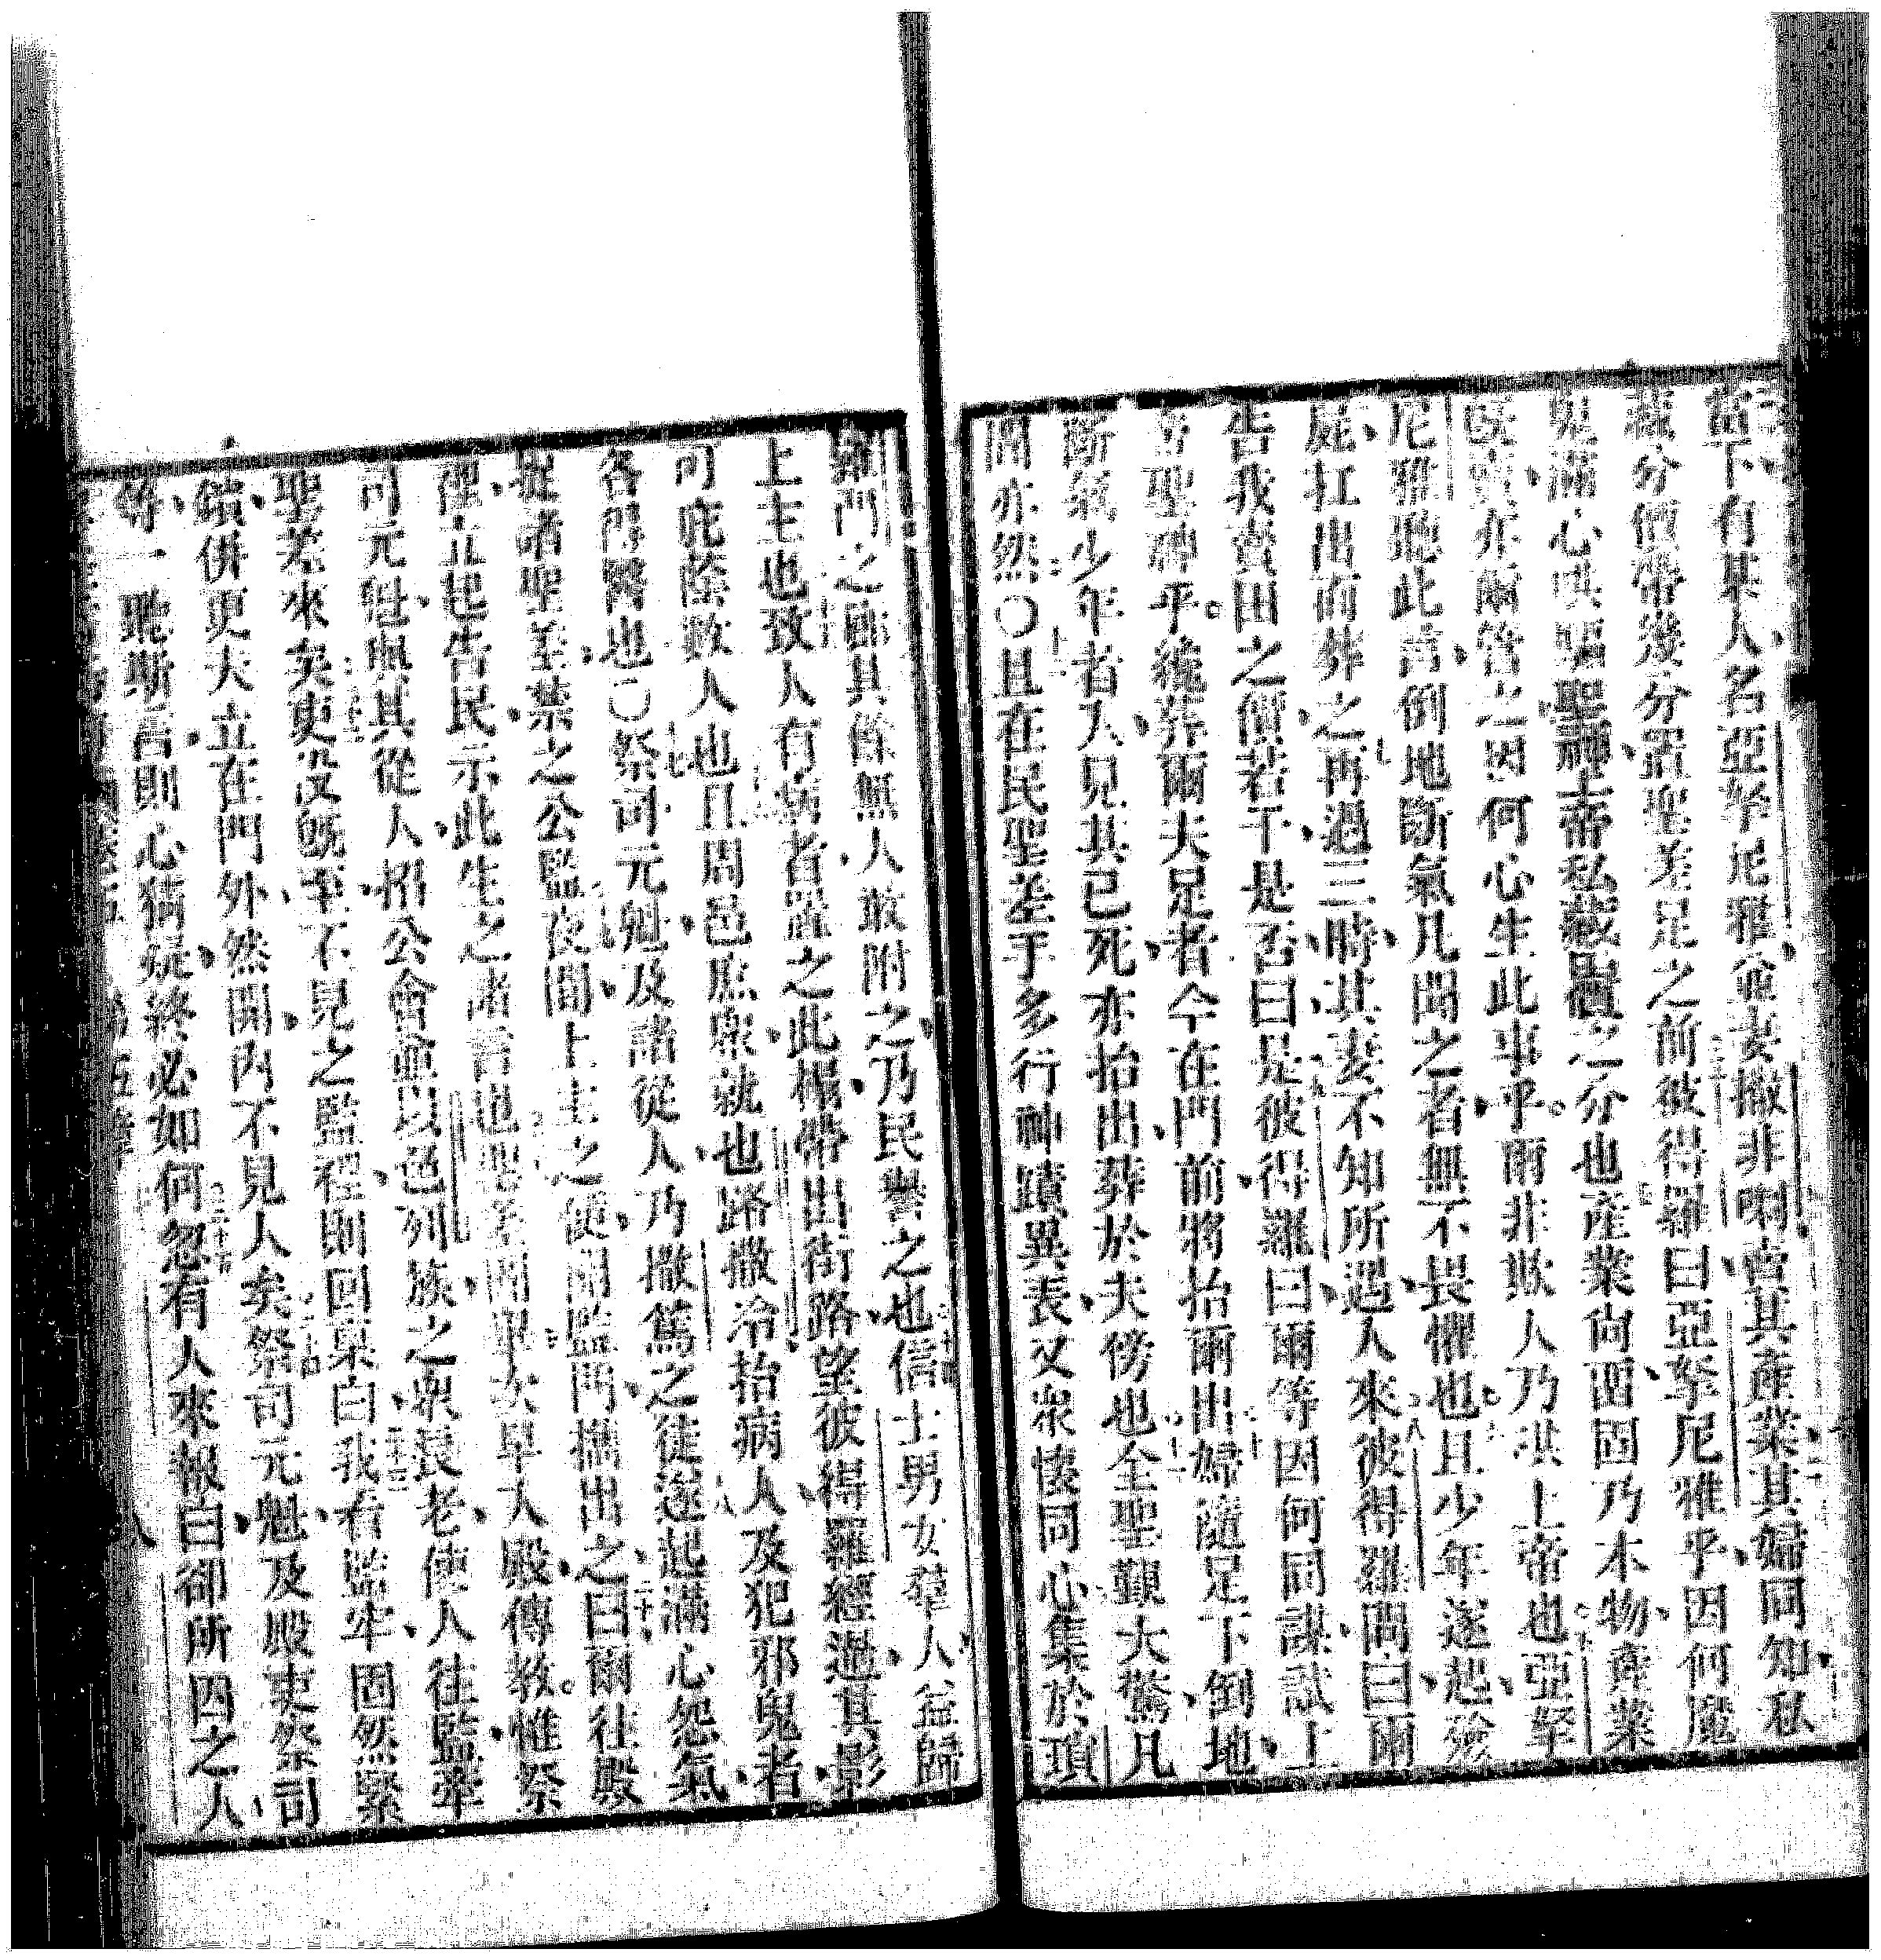 當下有某人名亞拏尼雅並妻撒非喇賣其產業其婦同知私
藏分價帶幾分置聖差足之前彼得羅曰亞拏尼雅乎因何魔
鬼滿心哄騙聖神上帝私藏價之分也產業尚留固乃本物產業
既賣亦爾管之因何心生此事乎爾非欺人乃哄上帝也亞拏
尼雅聽此言倒地斷氣凡聞之者無不畏懼也且少年遂起殮
屍扛出而葬之再過三時其妻不知所遇入來彼得羅問曰爾
告我賣田之價若干是否曰是彼得羅曰爾等因何同謀試上
帝聖神乎纔葬爾夫足者今在門前將抬爾出婦隨足下倒地
斷氣少年者入見其已死亦抬出葬於夫傍也全聖艱大驚凡
聞亦然〇且在民聖差手多行神蹟異表又眾懷同心集於項
羅門之廊其餘無人敢附之乃民譽之也信士男女羣人益歸
上主也致人有病者置之此榻帶出街路望彼得羅經過其影
可庇蔭數人也且周邑庶眾就也路撒冷抬病人及犯邪鬼者
各得醫也〇祭司元魁及諸從人乃撒篤之徒遂起滿心怨氣
捉諸聖差禁之公監夜間上主之使開監門攜出之曰爾往殿
裡立起告民示此生之諸言也聖差聞畢次早入殿傳教惟祭
司元魁與其從人招公會並以色列族之眾長老使人往監牽
聖差來矣吏役既至不見之監裡則回稟白我看監牢固然緊
鎖併更夫立在門外然開內不見人矣祭司元魁及殿吏祭司
等一聽斯言則心猜疑終必如何忽有人來報白卻所囚之人